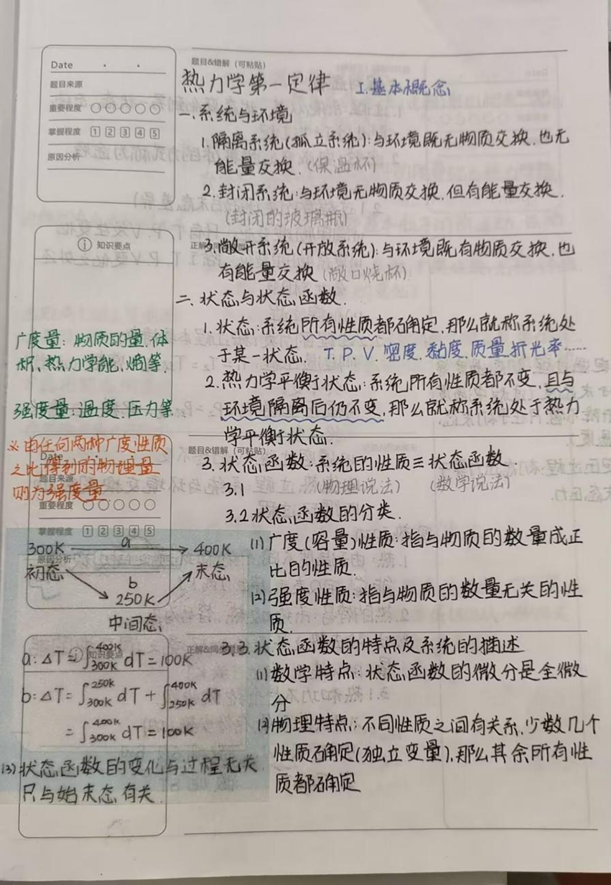 Date
题目来源
重要程度 ○○○○○
掌握程度 1 2 3 4 5
原因分析
题目&错解（可粘贴）
热力学第一定律 I.基本概念
一.系统与环境
1.隔离系统(孤立系统):与环境既无物质交换.也无
能量交换.(保温杯)
2.封闭系统:与环境无物质交换.但有能量交换.
(封闭的玻璃瓶)
① 知识要点
3.敞开系统(开放系统):与环境既有物质交换.也
有能量交换(敞口烧杯)
二.状态与状态函数.
1.状态:系统所有性质都确定.那么就称系统处
于某一状态. T.P.V.密度.黏度.质量.折光率……
2.热力学平衡状态:系统所有性质都不变.且与
环境隔离后仍不变.那么就称系统处于热力
学平衡状态.
题目&错解（可粘贴）
3.状态函数:系统的性质≡状态函数
3.1 (物理说法) (数学说法)
3.2状态函数的分类.
(1)广度(容量)性质:指与物质的数量成正
比的性质.
(2)强度性质:指与物质的数量无关的性
质.
3.3.状态函数的特点及系统的描述
(1)数学特点:状态函数的微分是全微
分
(2)物理特点:不同性质之间有关系.少数几个
性质确定(独立变量).那么其余所有性
质都确定
广度量:物质的量.体
积.热力学能.熵等.
强度量:温度.压力等
※由任何两种广度性质
之比得到的物理量
则为强度量
Date
重要程度 ○○○○○
掌握程度 1 2 3 4 5
300K a 400K
初态 末态
b
250K
中间态
知识要点
a:△T=∫₃₀₀ₖ⁴⁰⁰ᴷ dT=100K
b:△T=∫₃₀₀ₖ²⁵⁰ᴷ dT+∫₂₅₀ₖ⁴⁰⁰ᴷ dT
=∫₃₀₀ₖ⁴⁰⁰ᴷ dT=100K
(3)状态函数的变化与过程无关
只与始末态有关.